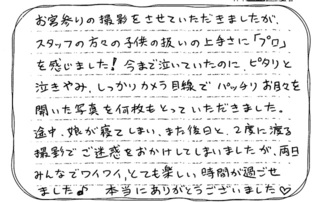 お宮参りの撮影をさせていただきましたが、
スタッフの方々の子供の扱いの上手さに「プロ」
を感じました！今まで泣いていたのに、ピタリと
泣きやみ、しっかりカメラ目線で パッチリお目々を
開いた写真を何枚もとっていただきました。
途中、娘が寝てしまい、また後日と、2度に渡る
撮影でご迷惑をおかけしてしまいましたが、両日
みんなでワイワイ、とても楽しい時間が過ごせ
ました♪ 本当にありがとうございました♡